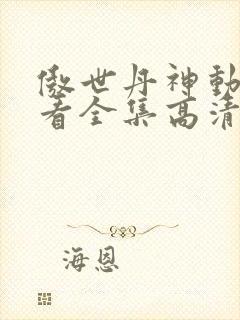 傲世丹神動
看全集高清
海恩